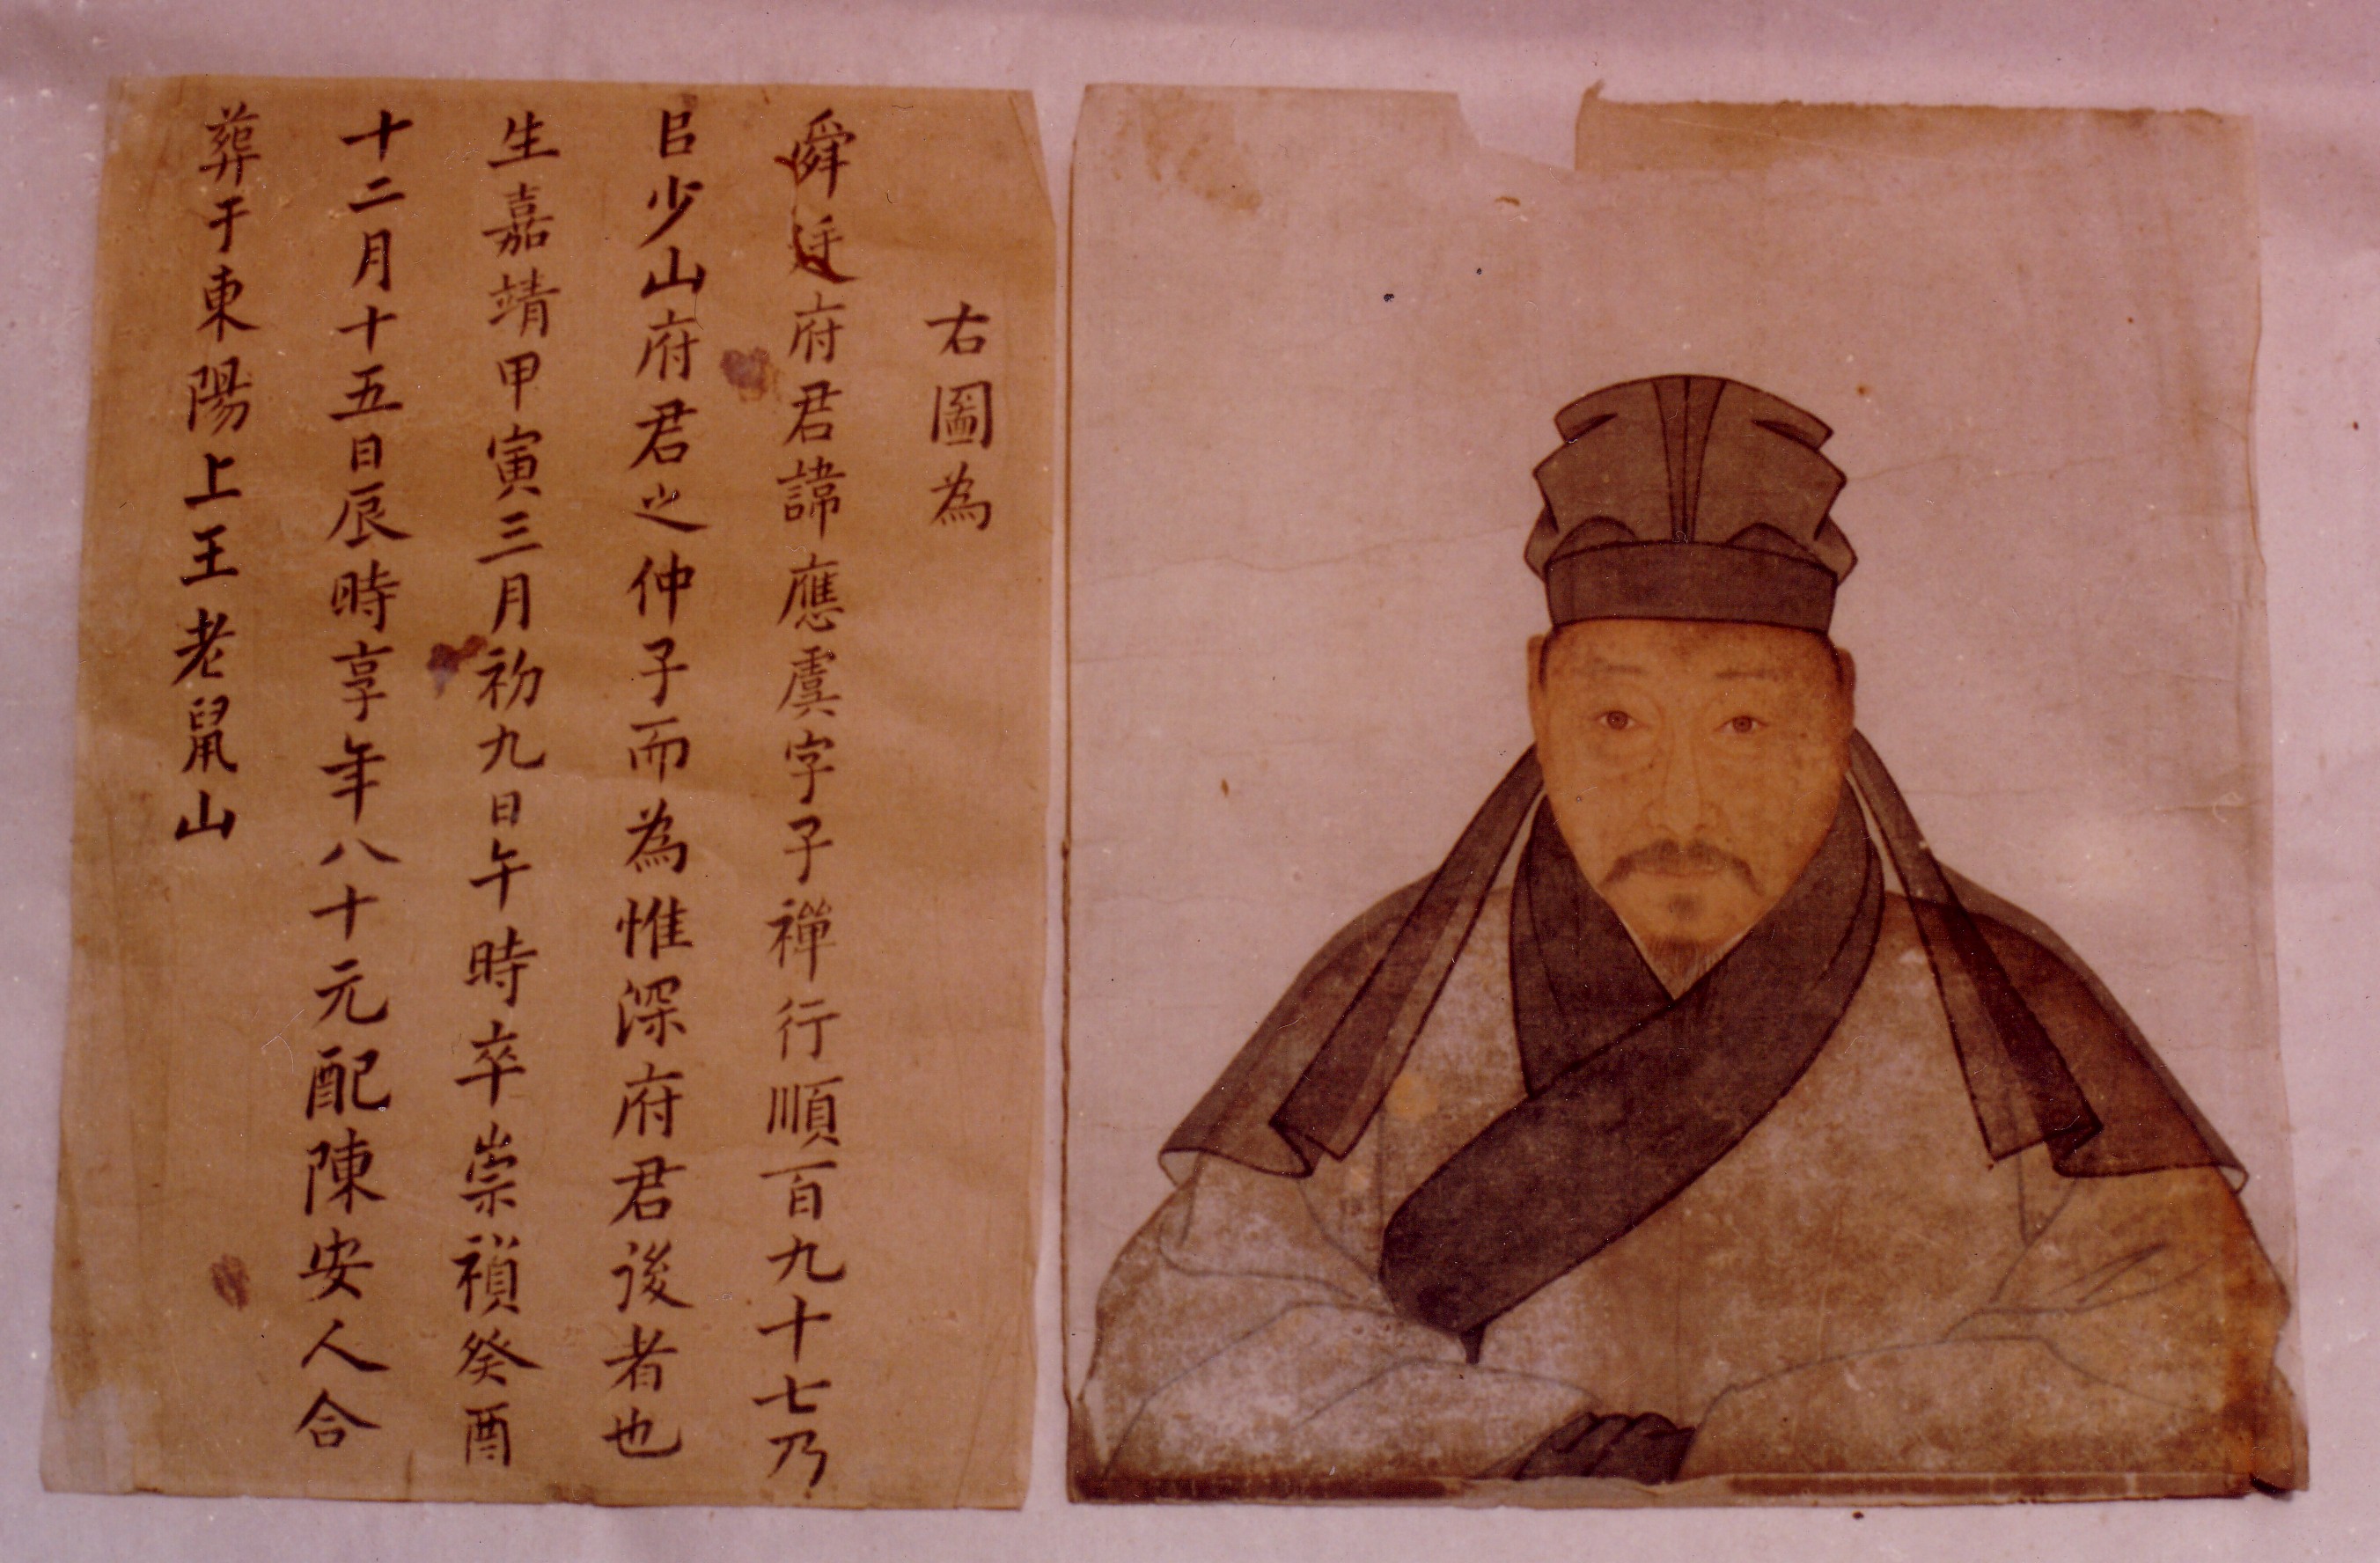 右圖為
舜廷府君諱應虞字子禪行順百九十七乃
少山府君之仲子而為惟深府君後者也
生嘉靖甲寅三月初九日午時卒崇禎癸酉
十二月十五日辰時享年八十元配陳安人合
葬于東陽上王老鼠山